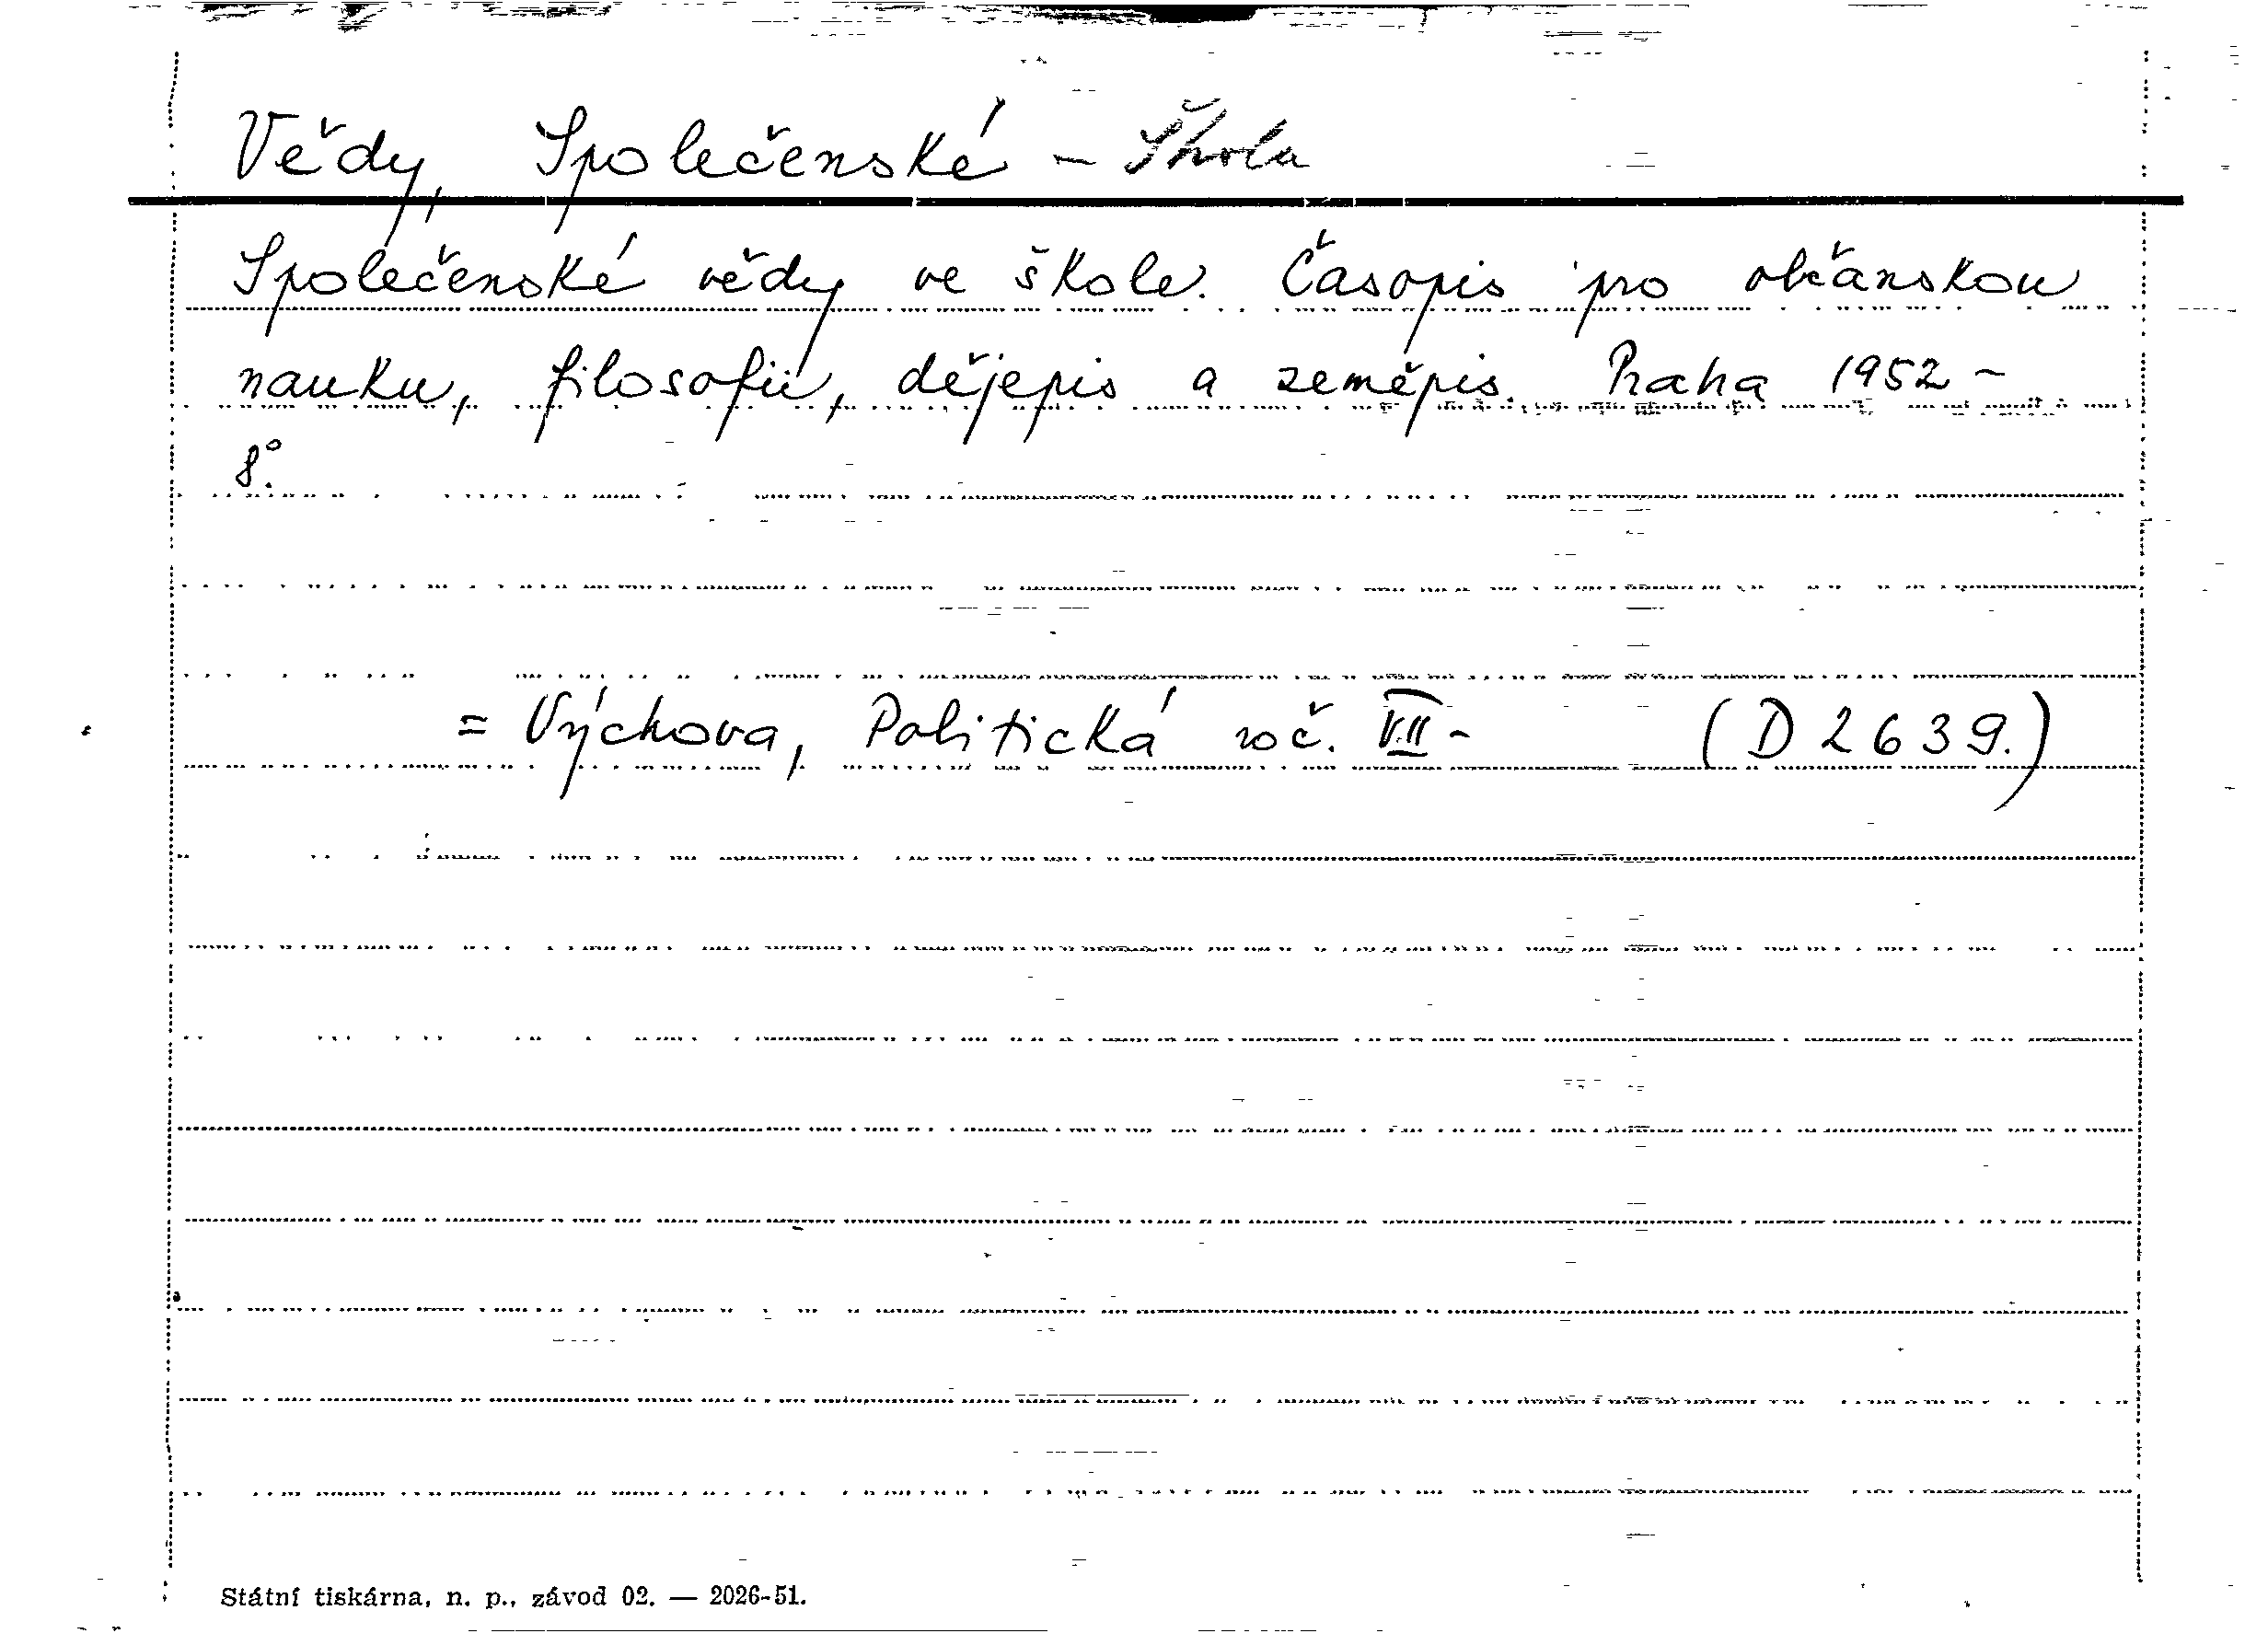 Vědy, Společenské - Škola
Společenské vědy ve škole. Časopis pro občanskou
nauku, filosofii, dějepis a zeměpis. Praha 1952 -
8°.
= Výchova, Politická roč. VII - (D 2639.)
Státní tiskárna, n. p., závod 02. — 2026-51.